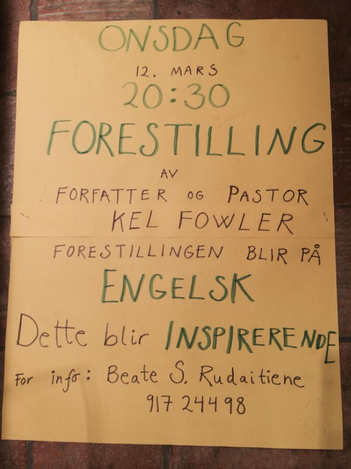 ONSDAG
12. MARS
20:30
FORESTILLING
AV
FORFATTER OG PASTOR
KEL FOWLER
FORESTILLINGEN BLIR PÅ
ENGELSK
Dette blir INSPIRERENDE
For info: Beate S. Rudaitiene
917 24498